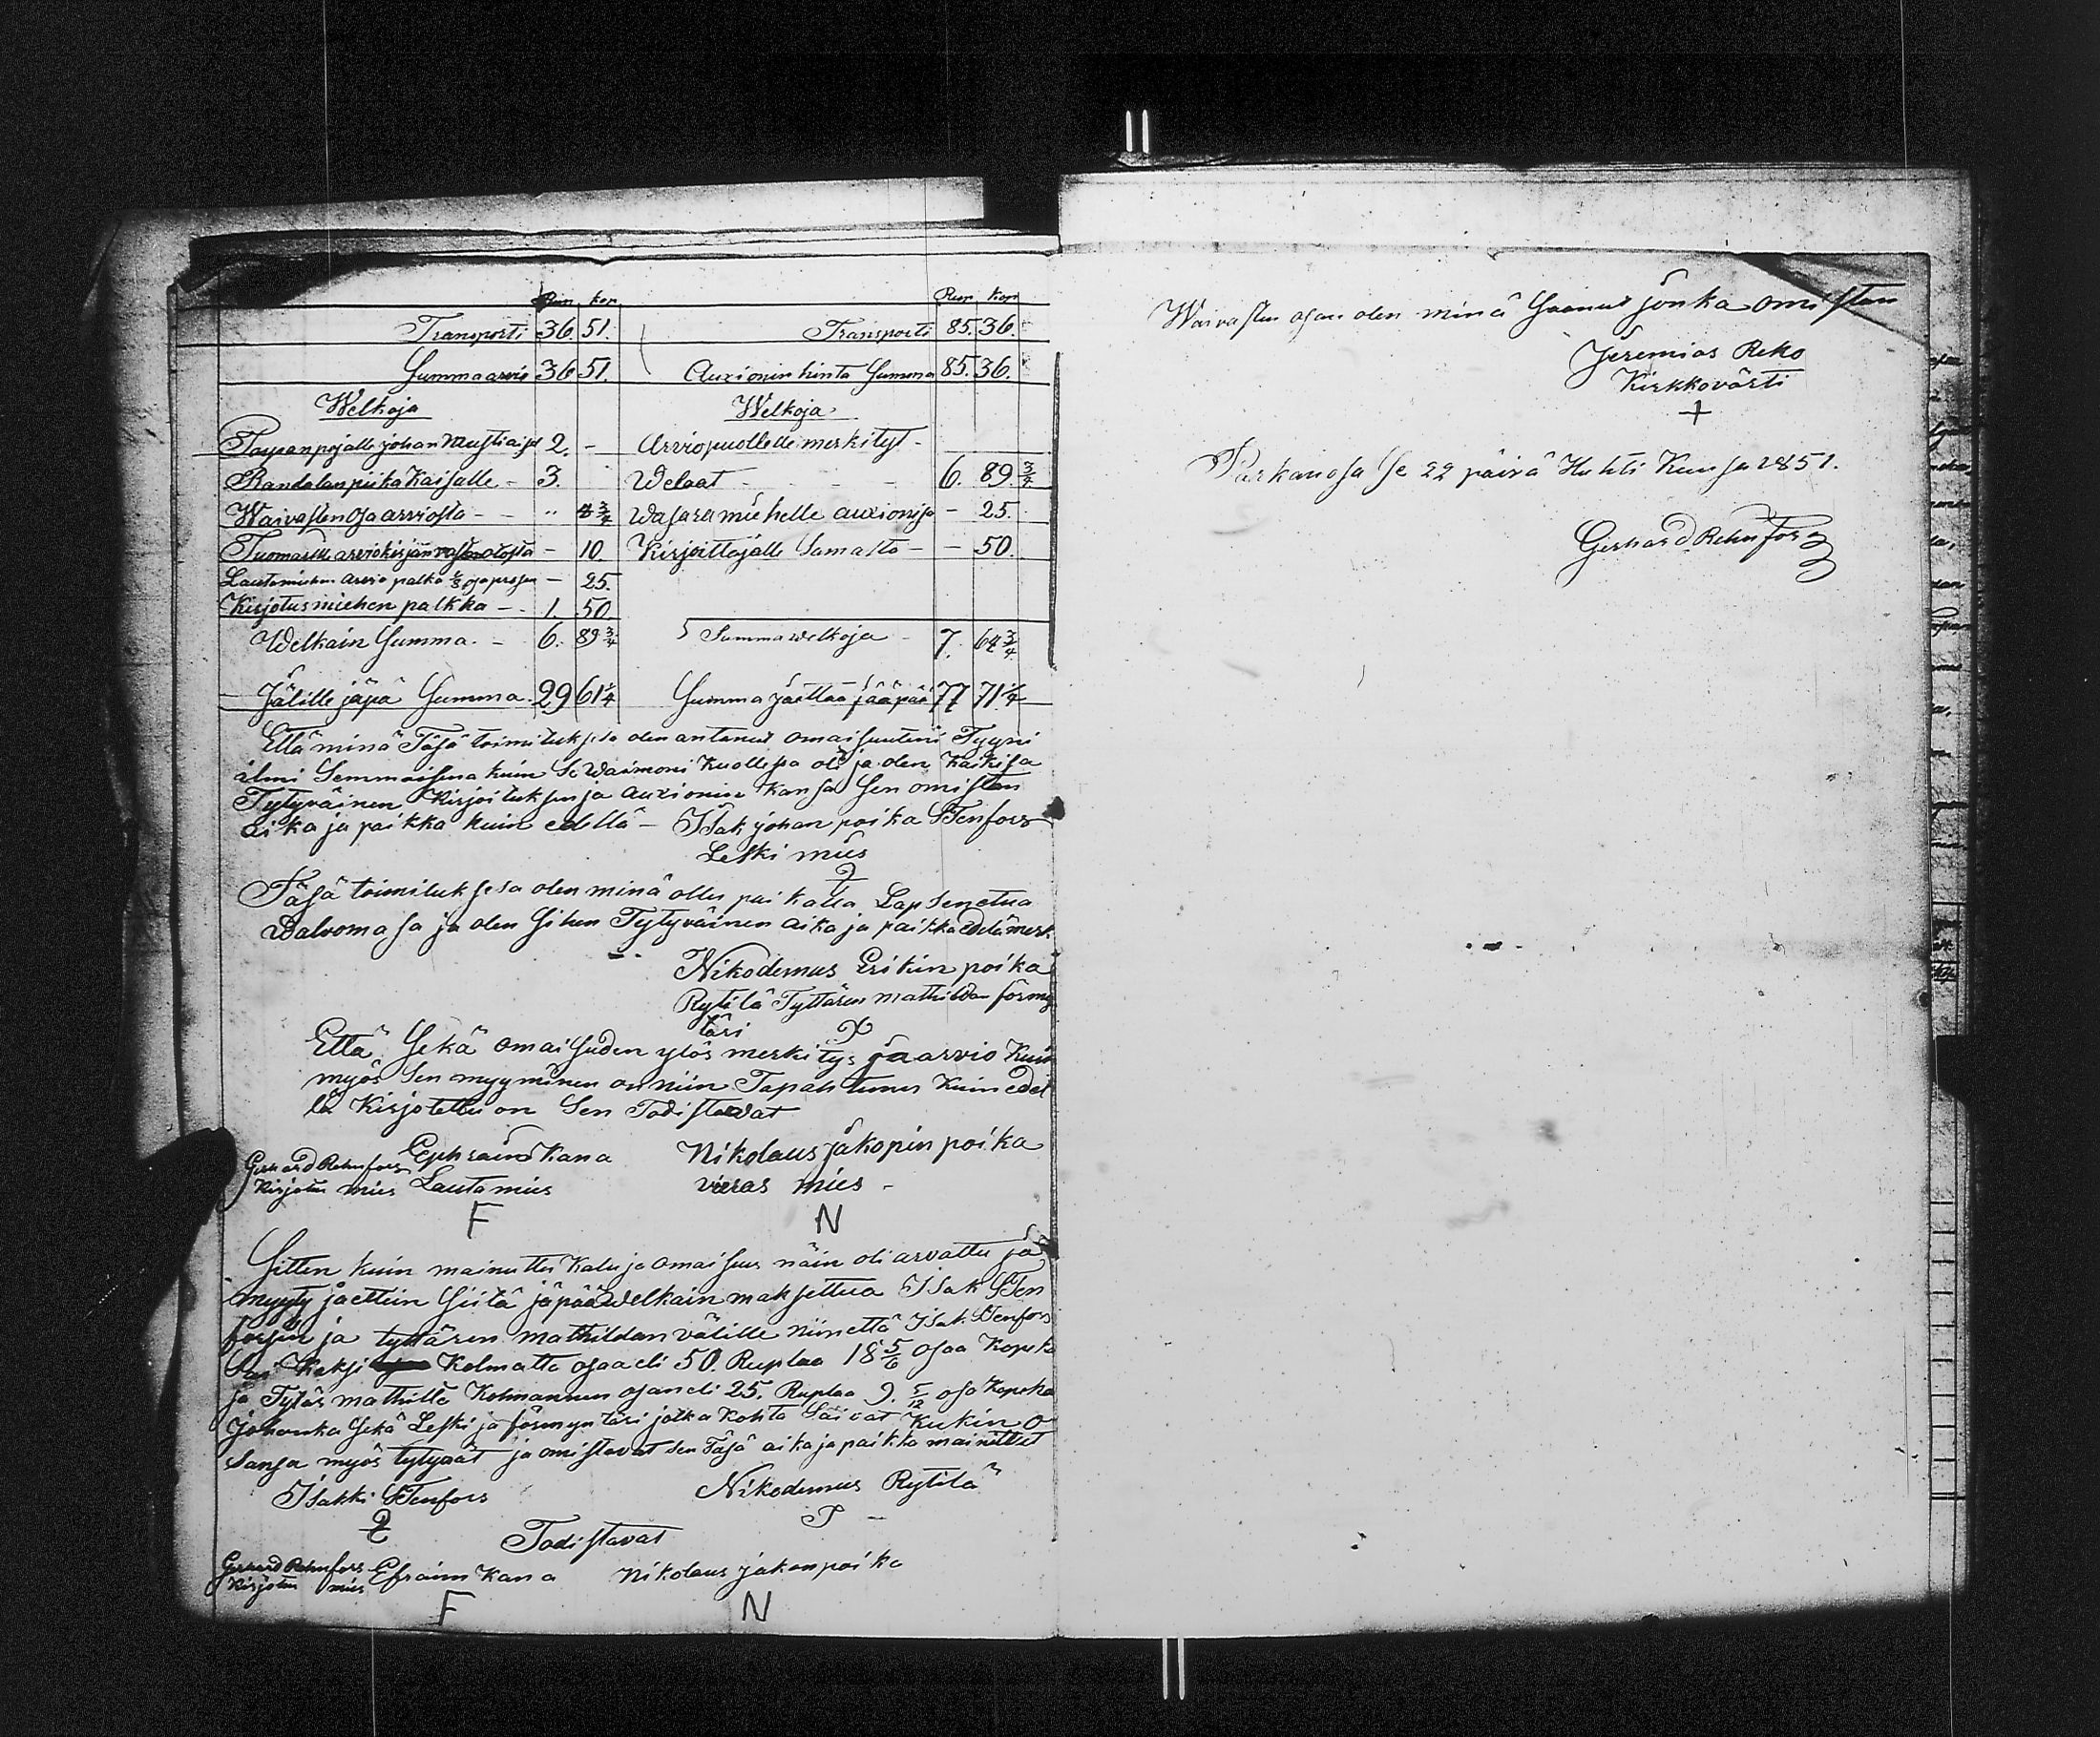 Rup. kop. Rup. kop.
Transporti 36. 51. Transporti 85. 36.
Summa arvio 36 51. Auxionin hinta Summa 85. 36.
Welkoja Welkoja
johan 2. - Arviopuollelle merkityt -
Randalan piika Kaisalle - 3. Welaat - - - 6. 89 3/4
Waivasten osa arviosta - - " 4 3/4 Wasara miehelle auxionisa - 25.
Tuomarille arviokirjan - 10. Kirjoittajalle Samasta - - 50.
Lautamiehen arvio palka - 25.
Kirjotusmiehen palkka - 1. 50.
Welkain Summa - 6. 89 3/4 Summa welkoja - 7. 64 3/4
Jälille jäpä Summa 29 61 1/4 Summa jaettaa jääpää 77 71 1/4
Että minä Täsä toimituksesa olen antanut omaisuuteni Tyyni
ilmi Semmaisena kuin Se Waimoni Kuollessa oli ja olen Kaikisa
Tytyväinen Kirjoituksen ja auxionin Kansa Sen omistan
aika ja paikka kuin edellä - Isak johan poika Stenfors
Leski mies
Täsä toimituksesa olen minä ollu paikalla Lapsen etua
Walvomasa ja olen Siihen Tytyväinen aika ja paikka edelä merk
Nikodemus Erikin poika
Rytilä Tyttären mathildan förmy
täri
Että Sekä omaisuden ylös merkitys ja arvio Kuin
myös Sen myyminen on niin Tapahtunu Kuin edel
lä Kirjotettu on Sen Todistawat
Gerhard Rehnfors Ephraim Kana Nikolaus jakopin poika
Kirjotus mies Lautamies vieras mies -
F N
Sitten kuin mainuttu Kalu ja omaisuus näin oli arvattu ja
myyty jaettiin Siitä jäpää Welkain maksettua Isak Sten
forsin ja tyttären mathildan välille niinettä Isak Stenfors
Sai Kaksi Kolmatta osaa eli 50. Ruplaa 18 5/6 osaa Kopeka
ja Tytär mathilda Kolmannen osan eli 25. Ruplaa 9. 5/12 osa Kopeka
Johonka Sekä Leski ja förmyntäri jotka kohta Saivat Kukin o
sansa myös tytyvät ja omistavat sen Täsä aika ja paikka mainittut
Isakki Stenfors Nikodemus Rytilä
Todistavat
Gerhard Rehnfors Efraim Kana Nikolaus jakonpoika
Kirjotus mies
F N
Waivasten osan olen minä Saanut jonka omistan
Jeremias Reko
Kirkkovärti
+
Parkanosa Se 22 päivä Huhti Kuusa 1851.
Gerhard Rehnfors